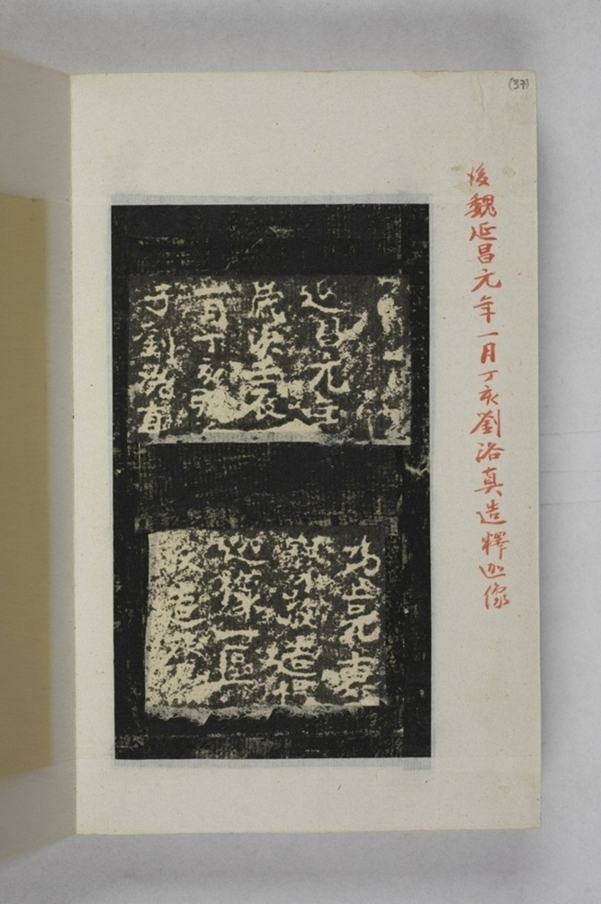 (37)
後魏延昌元年一月丁亥劉洛真造釋迦像
延昌元年
歲次壬辰
月丁亥朔
子劉洛真
為亡兄惠
敬造釋
迦像一區